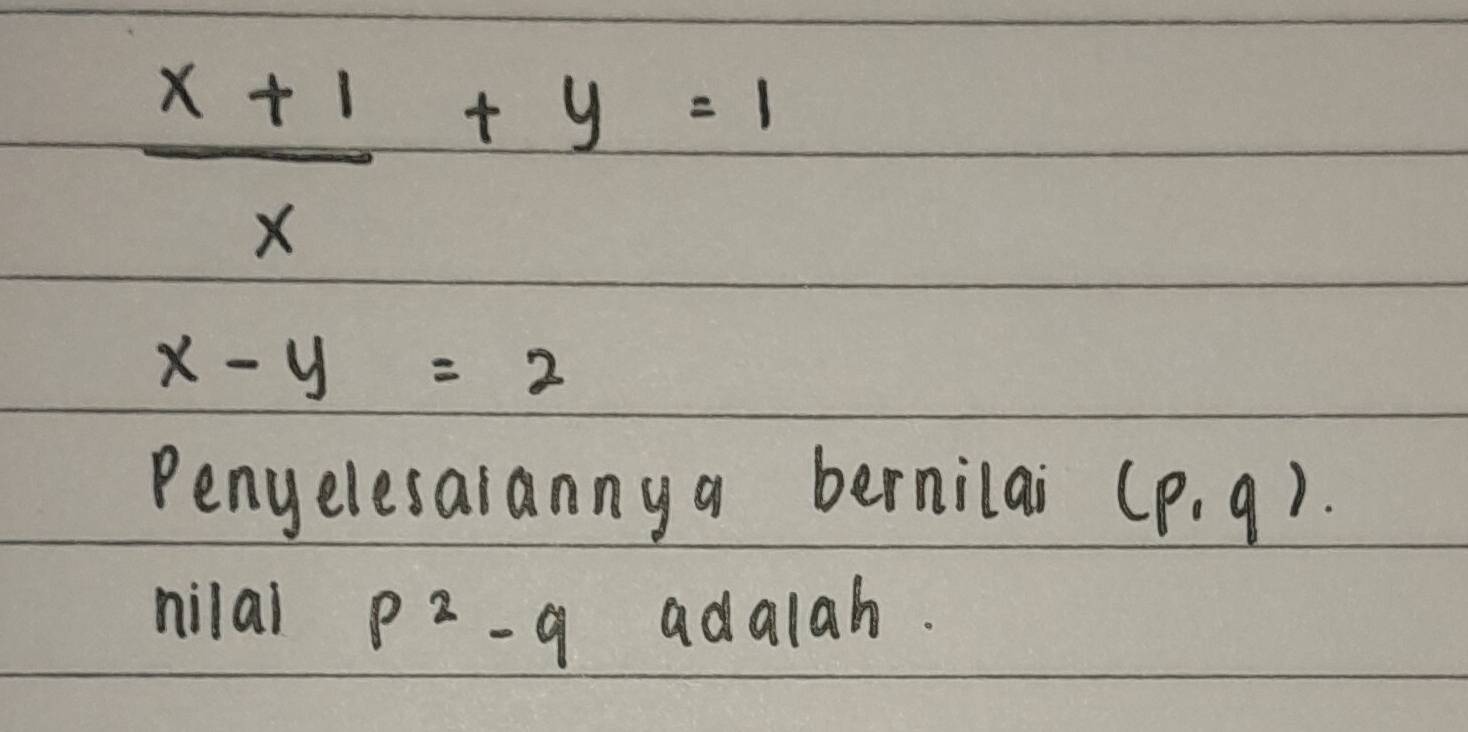 x + 1 + y = 1
x
x - y = 2
Penyelesaiannya bernilai (p, q).
nilai p² - q adalah.